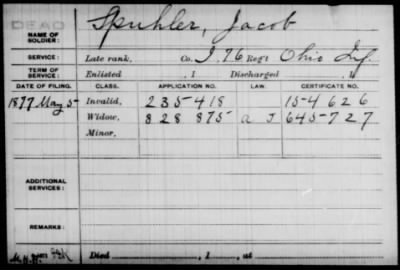 DEAD
NAME OF SOLDIER: Spuhler, Jacob
SERVICE: Late rank, Co. I, 76 Reg't Ohio Inf.
TERM OF SERVICE: Enlisted , 1 Discharged , 1
DATE OF FILING. CLASS. APPLICATION NO. LAW. CERTIFICATE NO.
1877 May 5 Invalid, 235-418 154626
Widow, 828 875 a J 645-727
Minor,
ADDITIONAL SERVICES:
REMARKS:
Died , 1 , at